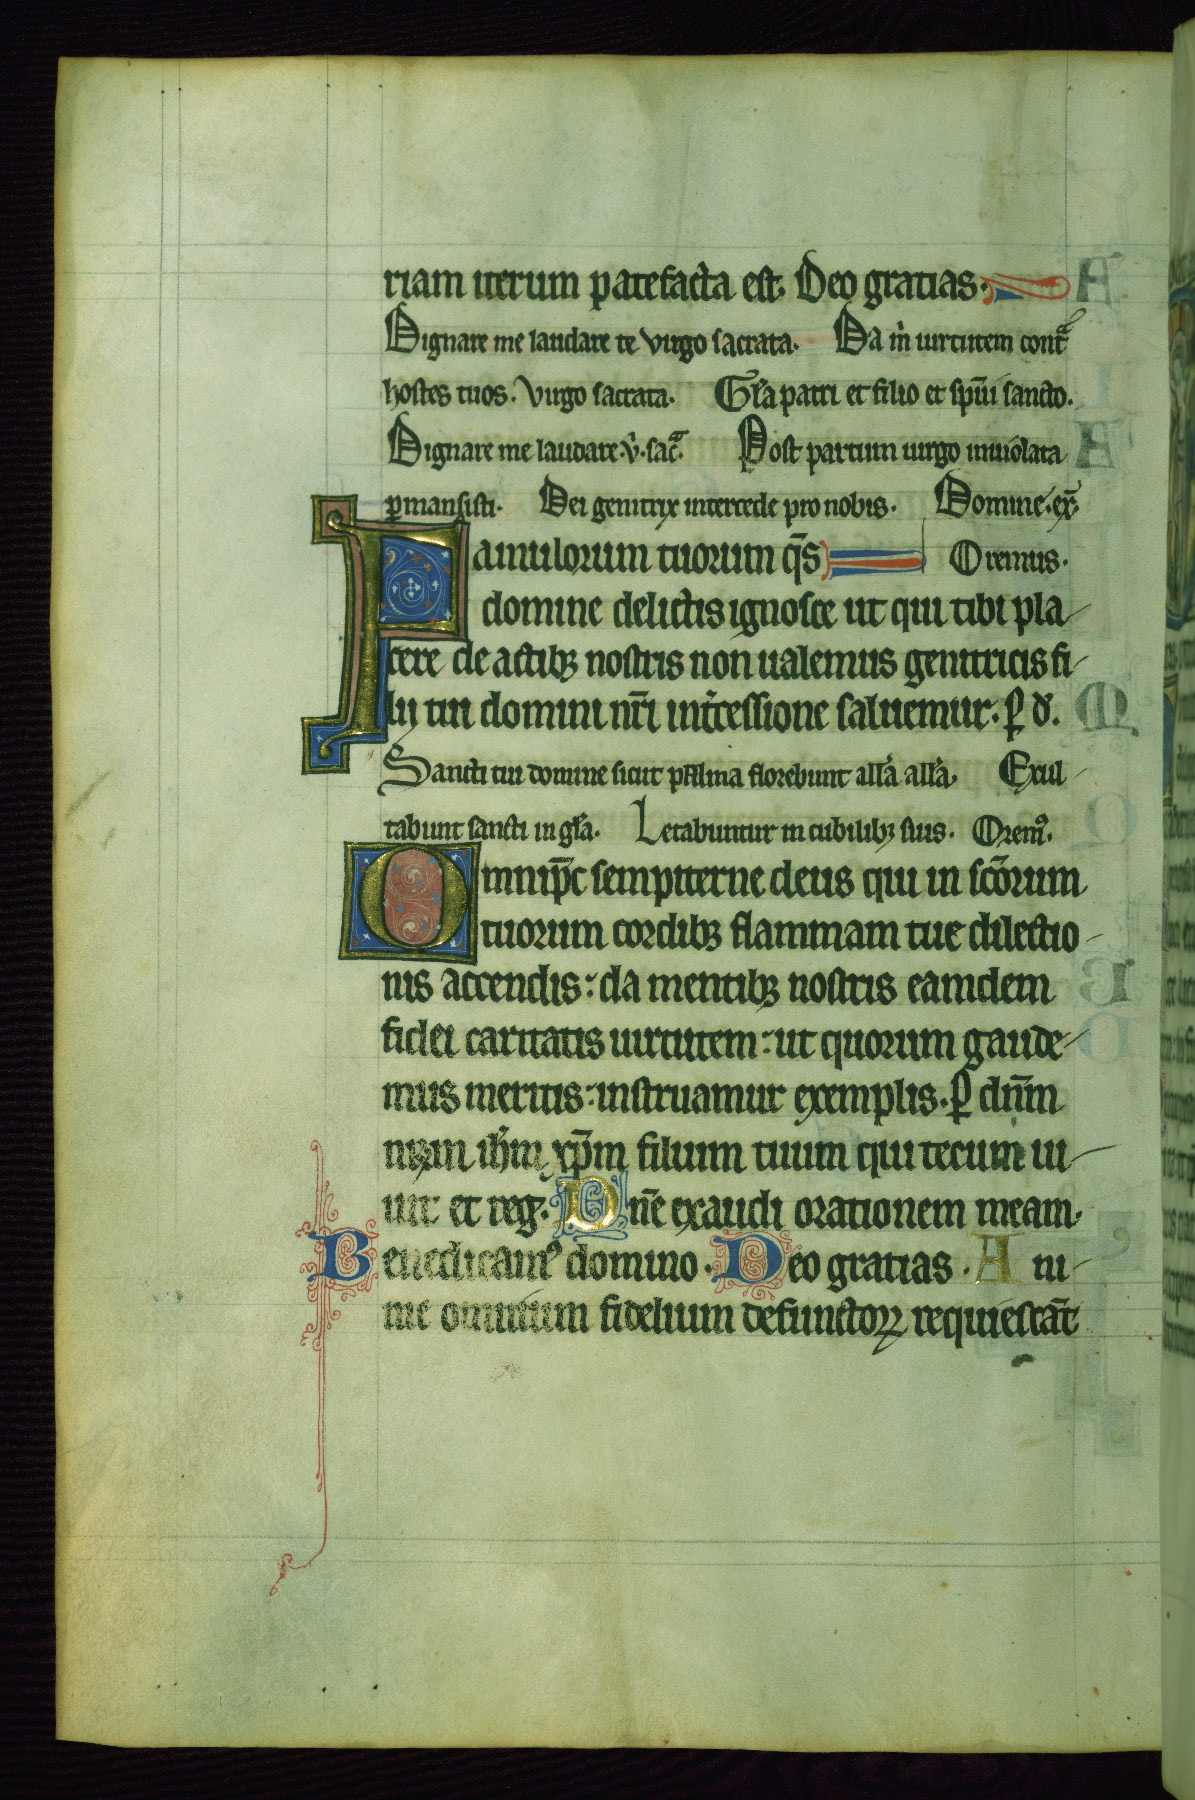 riam iterum patefacta est. Deo gratias.
Dignare me laudare te virgo sacrata. Da m̍ uirtutem contͣ
hostes tuos. Virgo sacrata. Gl̅a patri et filio et sp̅ui sancto.
Dignare me laudare. v̍. sac̅ͣ. Post partum uirgo inuiolata
ꝑmansisti. Dei genitrix intercede pro nobis. Domine. ex̅.
Famulorum tuorum q̅s Oremus.
domine delictis ignosce ut qui tibi pla
cere de actibꝫ nostris non ualemus genitricis fi
lij tui domini nr̅i int̍cessione saluemur. ꝑ d̅.
Sancti tui domine sicut palma florebunt all̅a all̅a. Exul
tabunt sancti in gl̅a. Letabuntur in cubilibꝫ suis. Oremꝰ.
Omnip̅c sempiterne deus qui in sc̅orum
tuorum cordibꝫ flammam tue dilectio
nis accendis: da mentibꝫ nostris eamdem
fidei caritatis uirtutem: ut quorum gaude
mus meritis: instruamur exemplis. ꝑ dn̅m
nr̅m ih̅m xp̅m filium tuum qui tecum ui
uit et reg. Dn̅e exaudi orationem meam.
Benedicamꝰ domino. Deo gratias. Ani
me omnium fidelium defunctoꝝ requiesca̅t